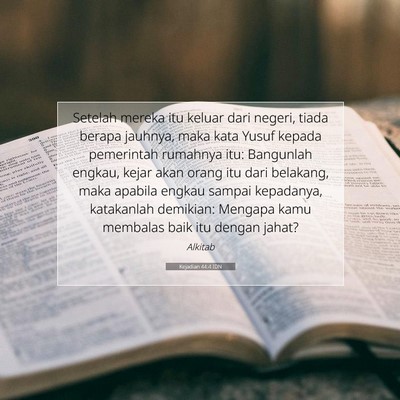 Setelah mereka itu keluar dari negeri, tiada
berapa jauhnya, maka kata Yusuf kepada
pemerintah rumahnya itu: Bangunlah
engkau, kejar akan orang itu dari belakang,
maka apabila engkau sampai kepadanya,
katakanlah demikian: Mengapa kamu
membalas baik itu dengan jahat?
Alkitab
Kejadian 44:4 IDN